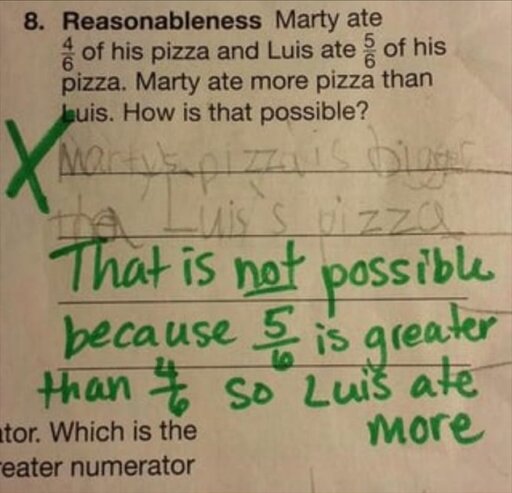 8. Reasonableness Marty ate
4/6 of his pizza and Luis ate 5/6 of his
pizza. Marty ate more pizza than
Luis. How is that possible?
X Marty's pizza is bigger
than Luis's pizza
That is not possible
because 5/6 is greater
than 4/6 so Luis ate
more
ator. Which is the
reater numerator